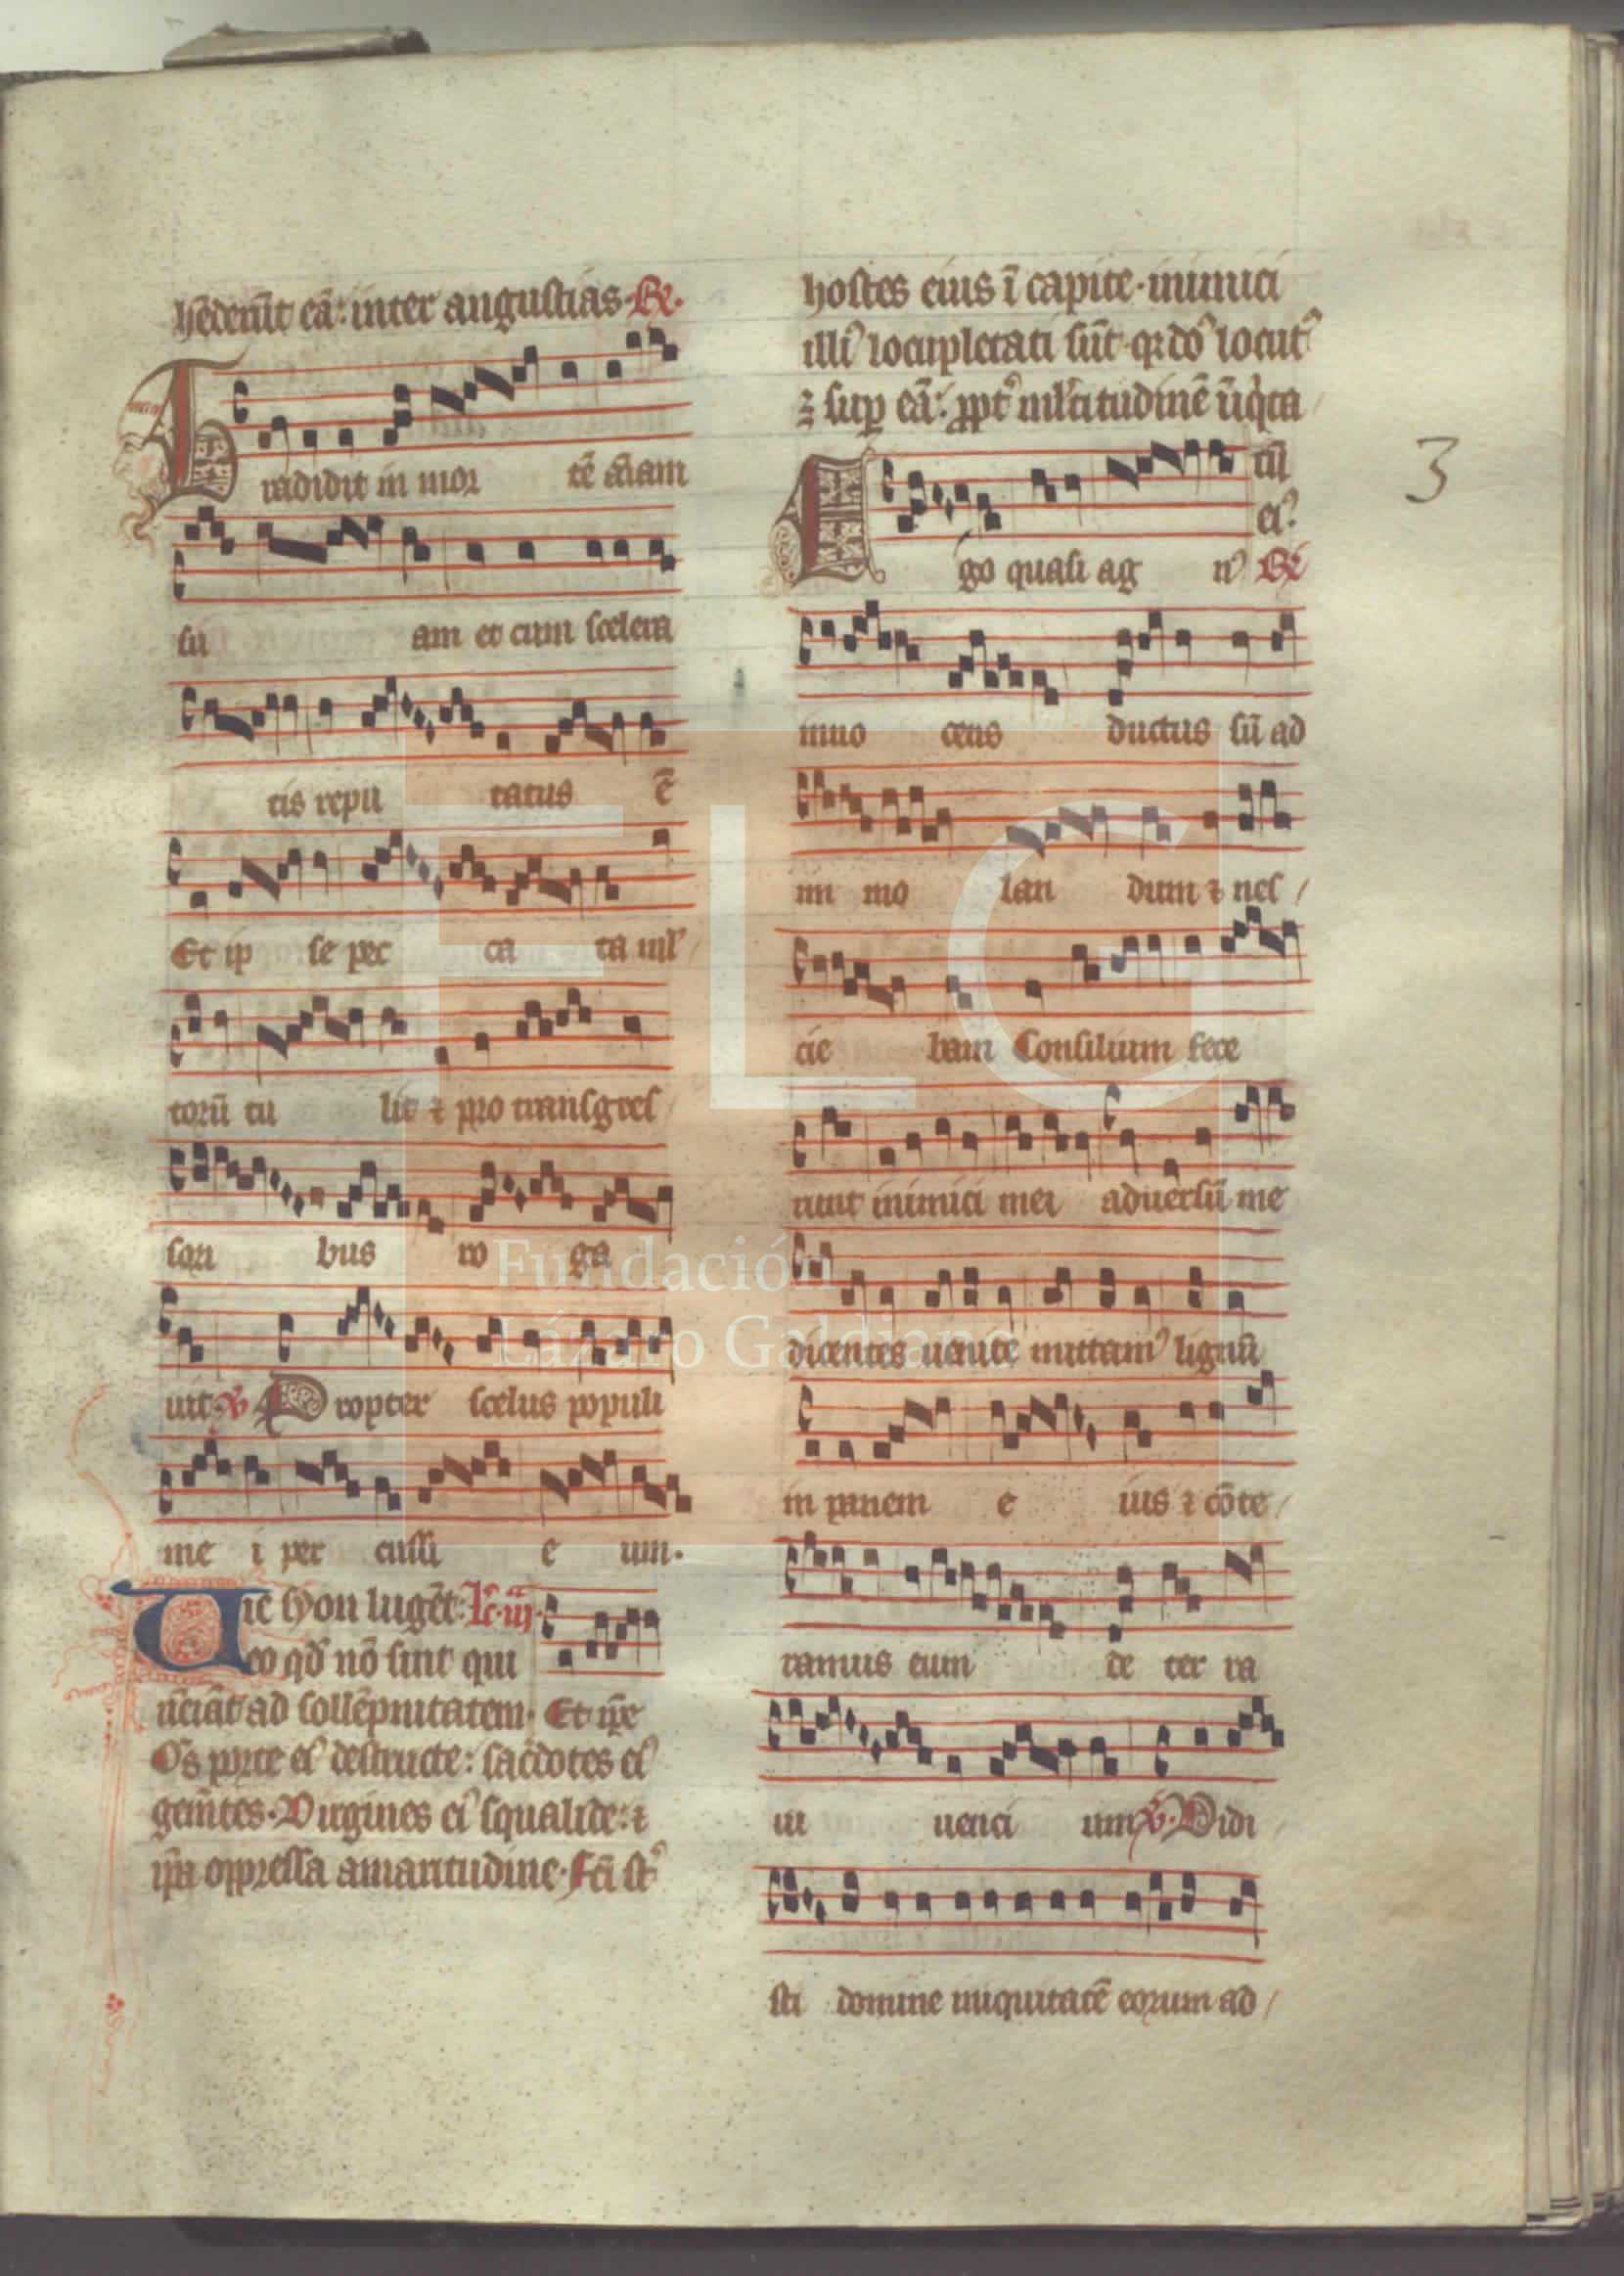 hēdert̄ eā: inter angustias. R̸.
Tradidit in mor tē aīam
su am et cum scelera
tis repu tatus ē
Et ip se pec ca ta ml'
torū tu lit ⁊ pro transgres
sori bus ro ga
uit. V̸. Propter scelus populi
me i per cussi e um.
Uie syon lugēt: Lc̄. iij.
eo qd̄ nō sint qui
ueniāt ad sollēpnitatem. Et ip̄e
Oēs porte eiꝰ destructe: sacdotes eiꝰ
gem̄tes. Virgines eiꝰ squalide: ⁊
ip̄a oppressa amaritudine. Fc̄i st̄
hostes eius ī capite. inimici
illiꝰ locupletati sūt. qꝛ dn̄s locutꝰ
ē sup eā: ppt̄ ml'titudinē iniq̇ta
tū
eiꝰ.
Ego quasi ag nꝰ R̸.
inno cens ductus sū ad
im mo lan dum ⁊ nes
cie bam Consilium fece
runt inimici mei aduersū me
dicentes uenite mittamꝰ lignū
in panem e ius ⁊ cōte
ramus eum de ter ra
ui uenci um. V̸. Vidi
sti domine iniquitatē eorum ad
3
FLG
Fundación
Lázaro Galdiano